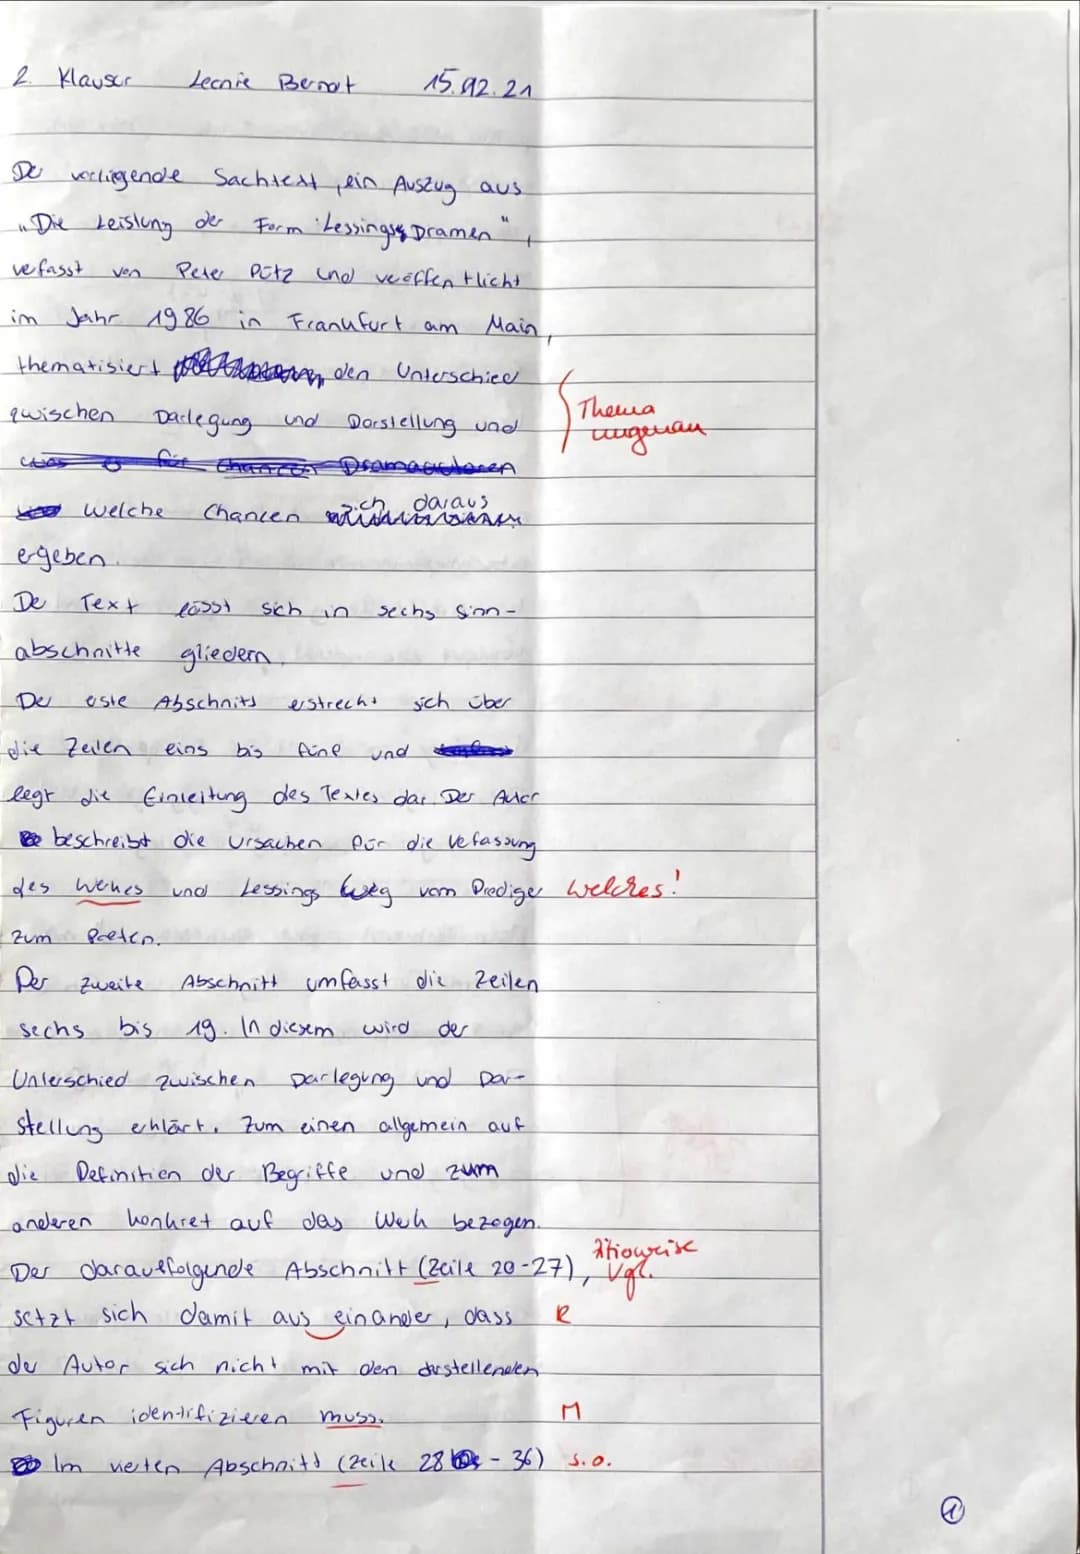 2. Klausur Leonie Bernat 15.12.21
De vorliegende Sachtext, ein Auszug aus
„Die Leistung der Form Lessings Dramen",
verfasst von Peter Pütz und veröffentlicht
im Jahr 1986 in Frankfurt am Main,
thematisiert den Unterschied
zwischen Darlegung und Darstellung und
Thema
ungenau
was für Chancen Dramaautoren
welche Chancen sich daraus
ergeben.
De Text lässt sich in sechs Sinn-
abschnitte gliedern.
Der erste Abschnitt erstreckt sich über
die Zeilen eins bis fünf und
legt die Einleitung des Textes dar. Der Autor
beschreibt die Ursachen für die Verfassung
des Werkes und Lessings Weg vom Prediger Welches!
zum Poeten.
Der zweite Abschnitt umfasst die Zeilen
sechs bis 19. In diesem wird der
Unterschied zwischen Darlegung und Dar-
stellung erklärt. Zum einen allgemein auf
die Definition der Begriffe und zum
anderen konkret auf das Werk bezogen.
Der darauffolgende Abschnitt (Zeile 20-27), Zitierweise
Vgl.
setzt sich damit aus einander, dass R
der Autor sich nicht mit den darstellenden
Figuren identifizieren muss. M
Im vierten Abschnitt (Zeile 28 - 36) s.o.
1